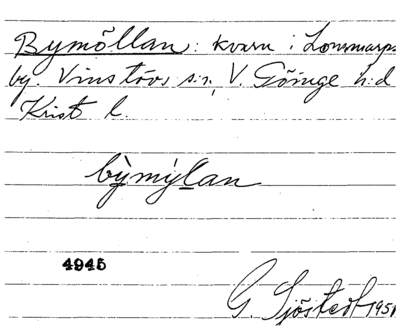 Bymöllan: kvarn i Lommarps
by. Vinslövs s:n, V. Göinge h:d
Krist l.
bỳmýlan
4945
G. Sjöstedt 1951